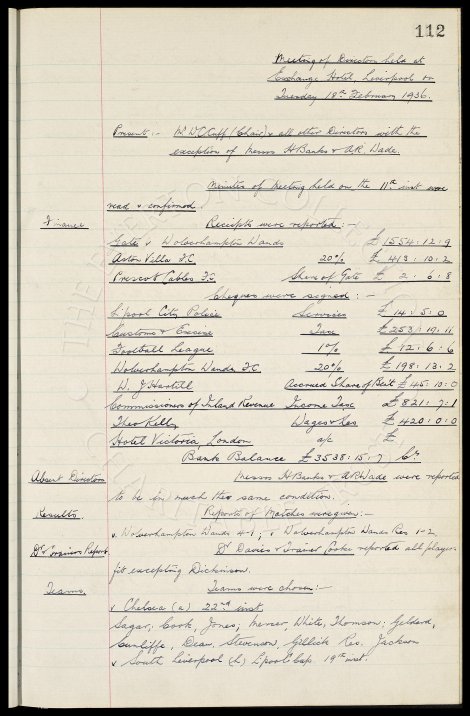 112
Meeting of Directors held at
Exchange Hotel, Liverpool on
Tuesday 18th February 1936.
Present :- Mr W C Cuff (Chair) & all other Directors with the
exception of Messrs H Banks & A.R. Wade.
Minutes of Meeting held on the 11th inst were
read & confirmed
Finance Receipts were reported :
Gate v Wolverhampton Wands £ 1554 : 12 : 9
Aston Villa F.C. 20% £ 413 . 10 . 2
Prescot Cables F.C. Share of Gate £ 2 . 6 . 8
Cheques were signed : -
L'pool City Police Services £ 14 : 5 : 0
Customs & Excise Tax £ 253 : 19 : 11
Football League 1% £ 12 . 6 . 6
Wolverhampton Wands F.C. 20% £ 198 : 13 . 2
W. J Hartill Accrued Share of Ben't £ 45 : 10 : 0
Commissioners of Inland Revenue Income Tax £ 821 : 7 : 1
Theo Kelly Wages & Exs £ 420 : 0 : 0
Hotel Victoria London a/c £
Bank Balance £ 3538 : 15 : 7 Cr.
Absent Directors Messrs H Banks & A R Wade were reported
to be in much the same condition.
Results. Reports of Matches were given :-
v. Wolverhampton Wands 4-1 ; v Wolverhampton Wands Res 1-2
Dr & Trainers Report. Dr Davies & Trainer Cooke reported all players
fit excepting Dickinson.
Teams. Teams were chosen :-
v Chelsea (a) 22nd inst.
Sagar; Cook, Jones; Mercer, White, Thomson; Geldard,
Cunliffe, Dean, Stevenson, Gillick Res. Jackson
v South Liverpool (L) L'pool Cup 19th inst.